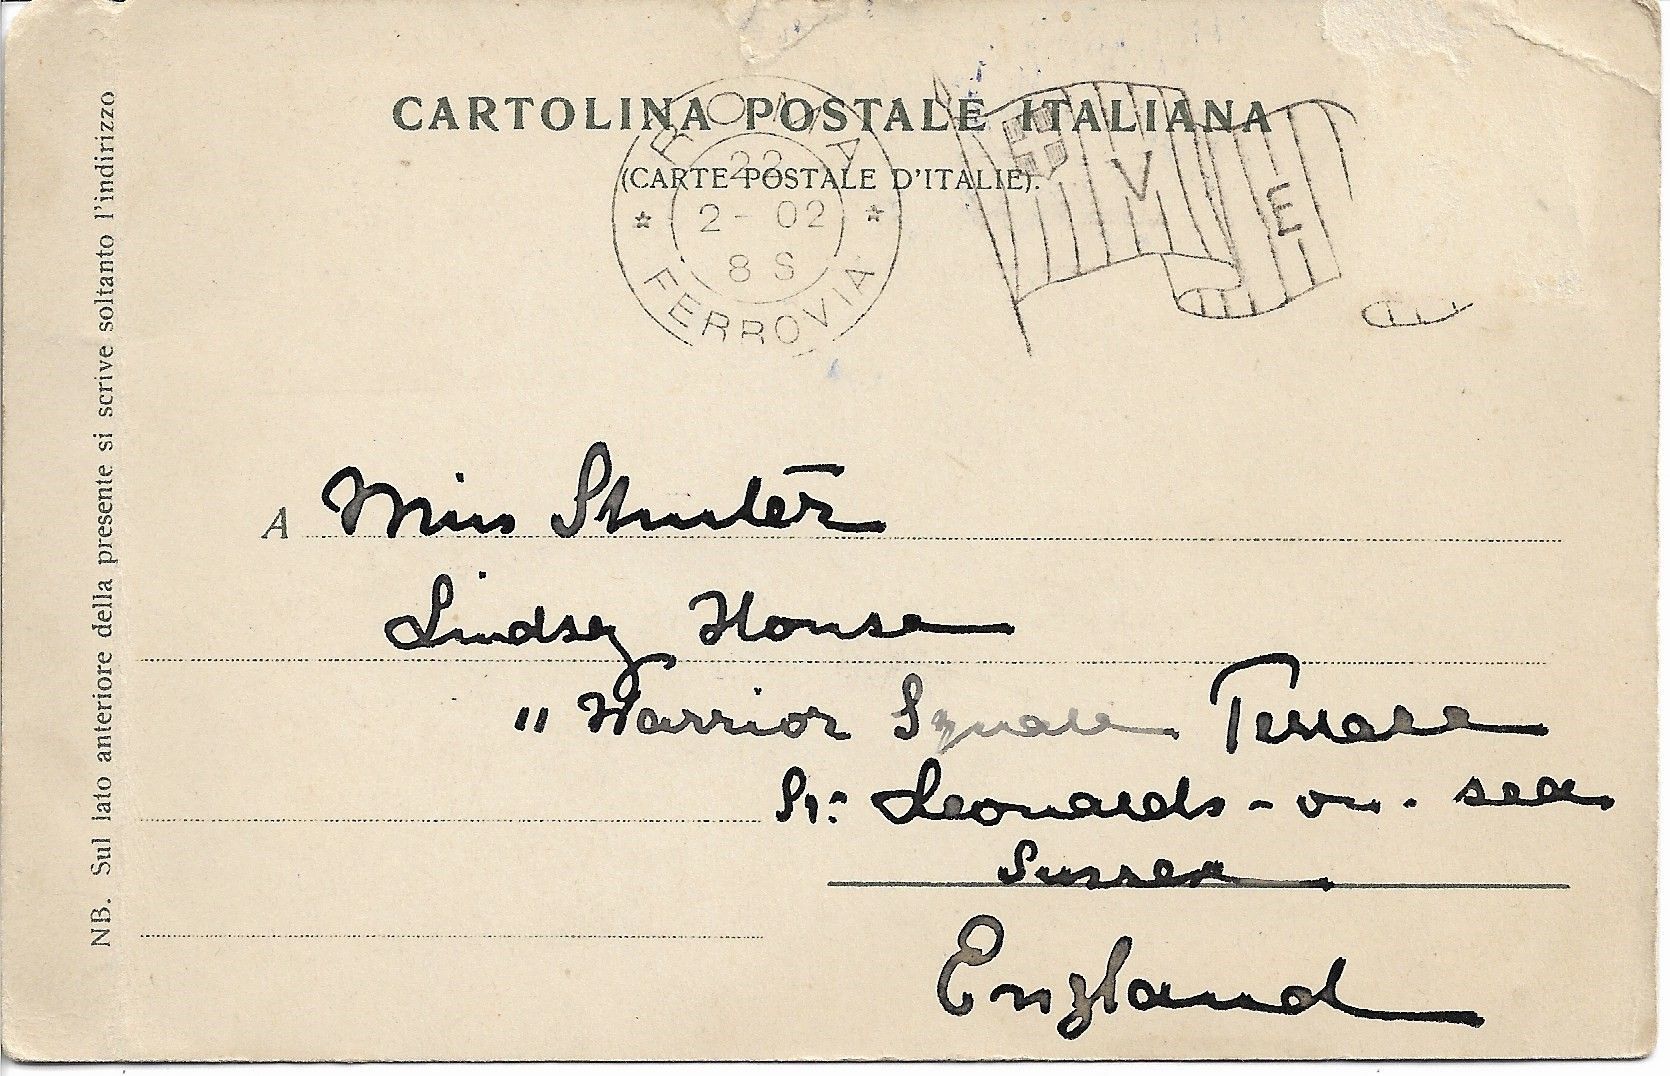 CARTOLINA POSTALE ITALIANA
(CARTE POSTALE D'ITALIE).
ROMA
22
2-02
8 S
* FERROVIA *
V E
A Miss Shuter
Lindsey House
11 Warrior Square Terrace
St: Leonards-on-sea
Sussex
England
NB. Sul lato anteriore della presente si scrive soltanto l'indirizzo